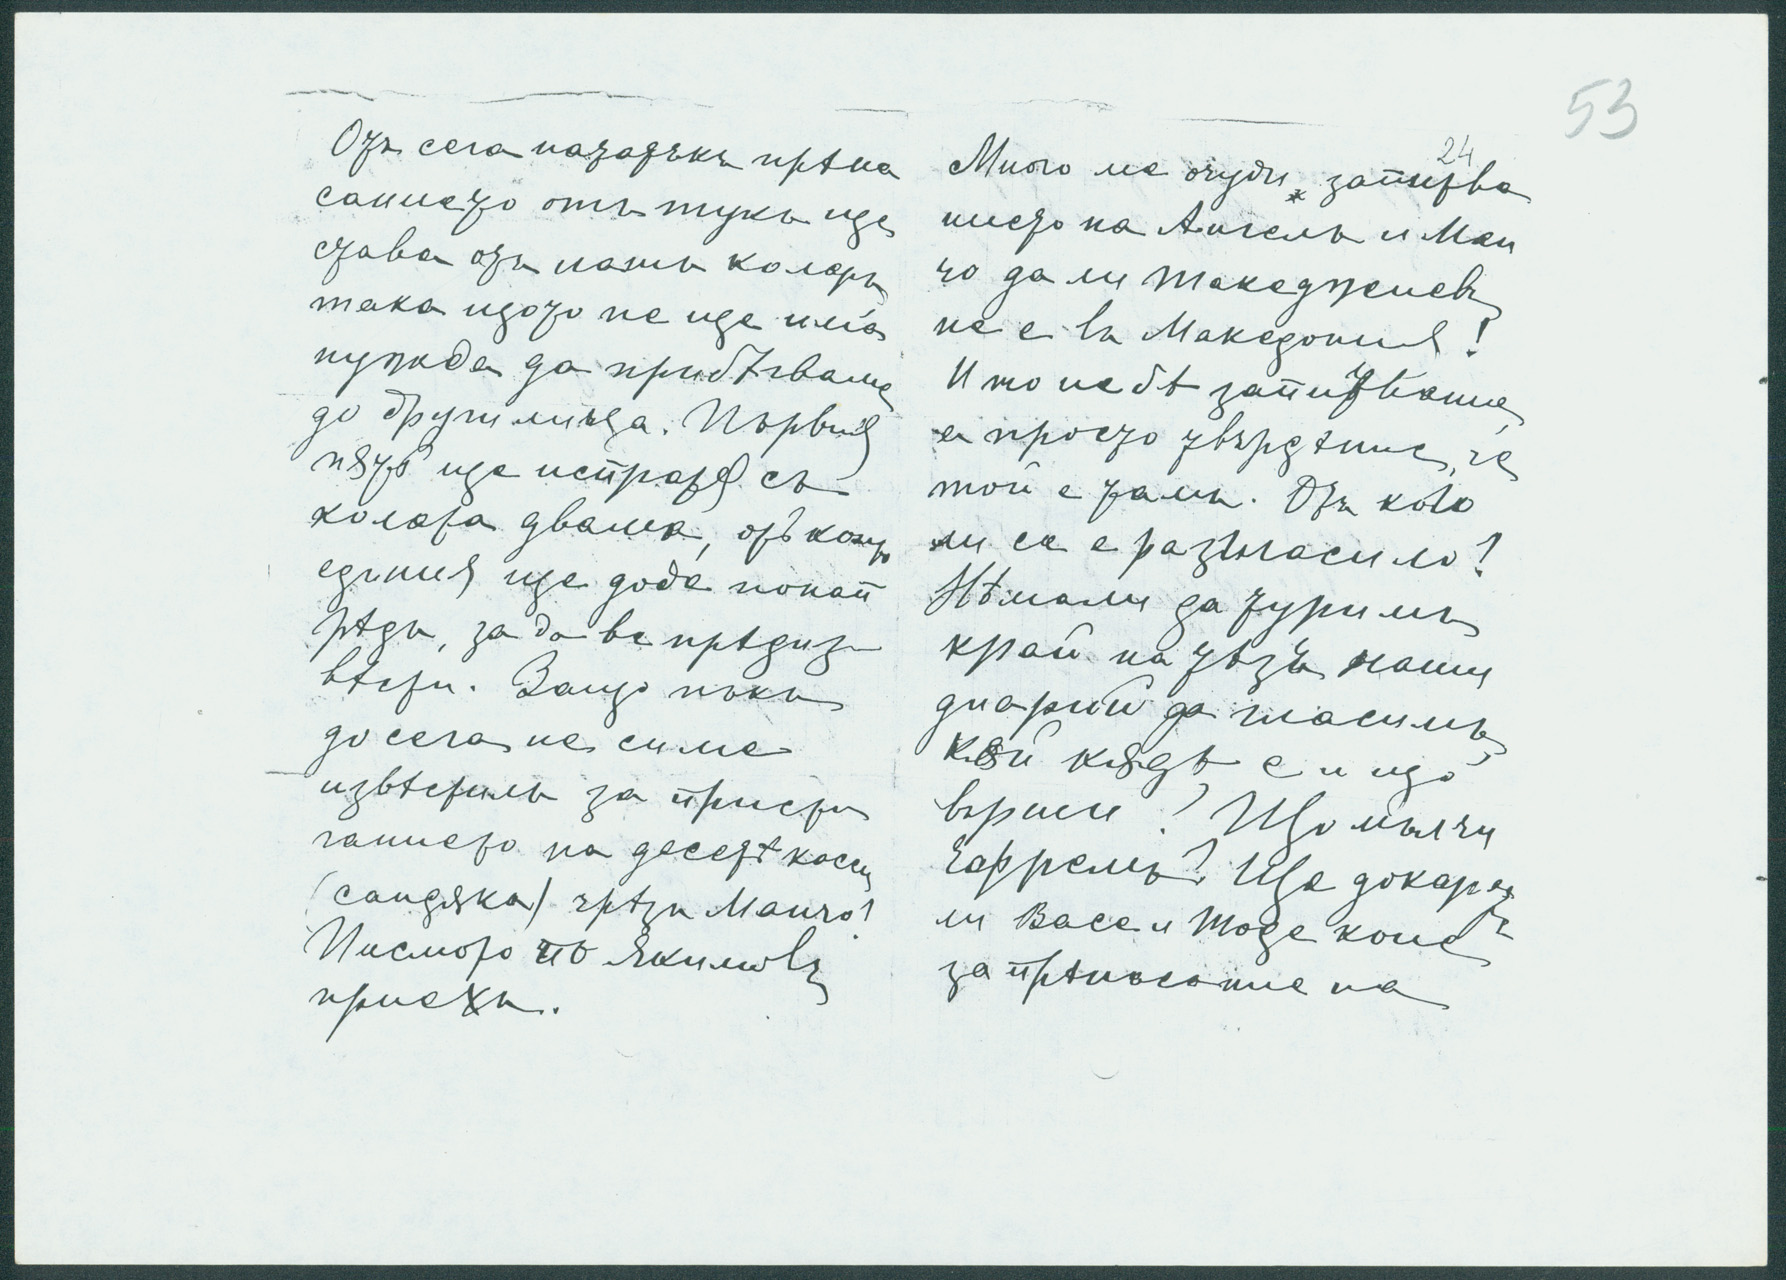 53
24
Отъ сега назадъкъ прѣна
санието отъ тукъ ще
става отъ нашъ коларъ
така щото не ще има
нужда да прибѣгваме
до други лица. Първия
пѫтъ ще испратѭ съ
колата двама, отъ които
единия ще доде понап
рѣдъ, за да ве прѣдиз
вѣсти. Защо пъкъ
до сега не симе
извѣстилъ за присти
ганието на десетѣ касси
(сандѫка) чрѣзъ Манчо?
Писмото по Якимовъ
приехъ.
Много ме очуди запитва
нието на Ангелъ и Ман
чо да ли Такеджиевъ
не е въ Македония!
И то не бѣ запитвание,
а просто твърдѣние, че
той е тамъ. Отъ кого
ли се е разгласило?
Нѣмали да туримъ
край на тѣзъ наши
диарии да гласимъ
кой кѫдѣ е и що
върши? Що мълчи
Чаррелъ? Ще докарат
ли Васе и Тоде коне
за прѣнасяние на